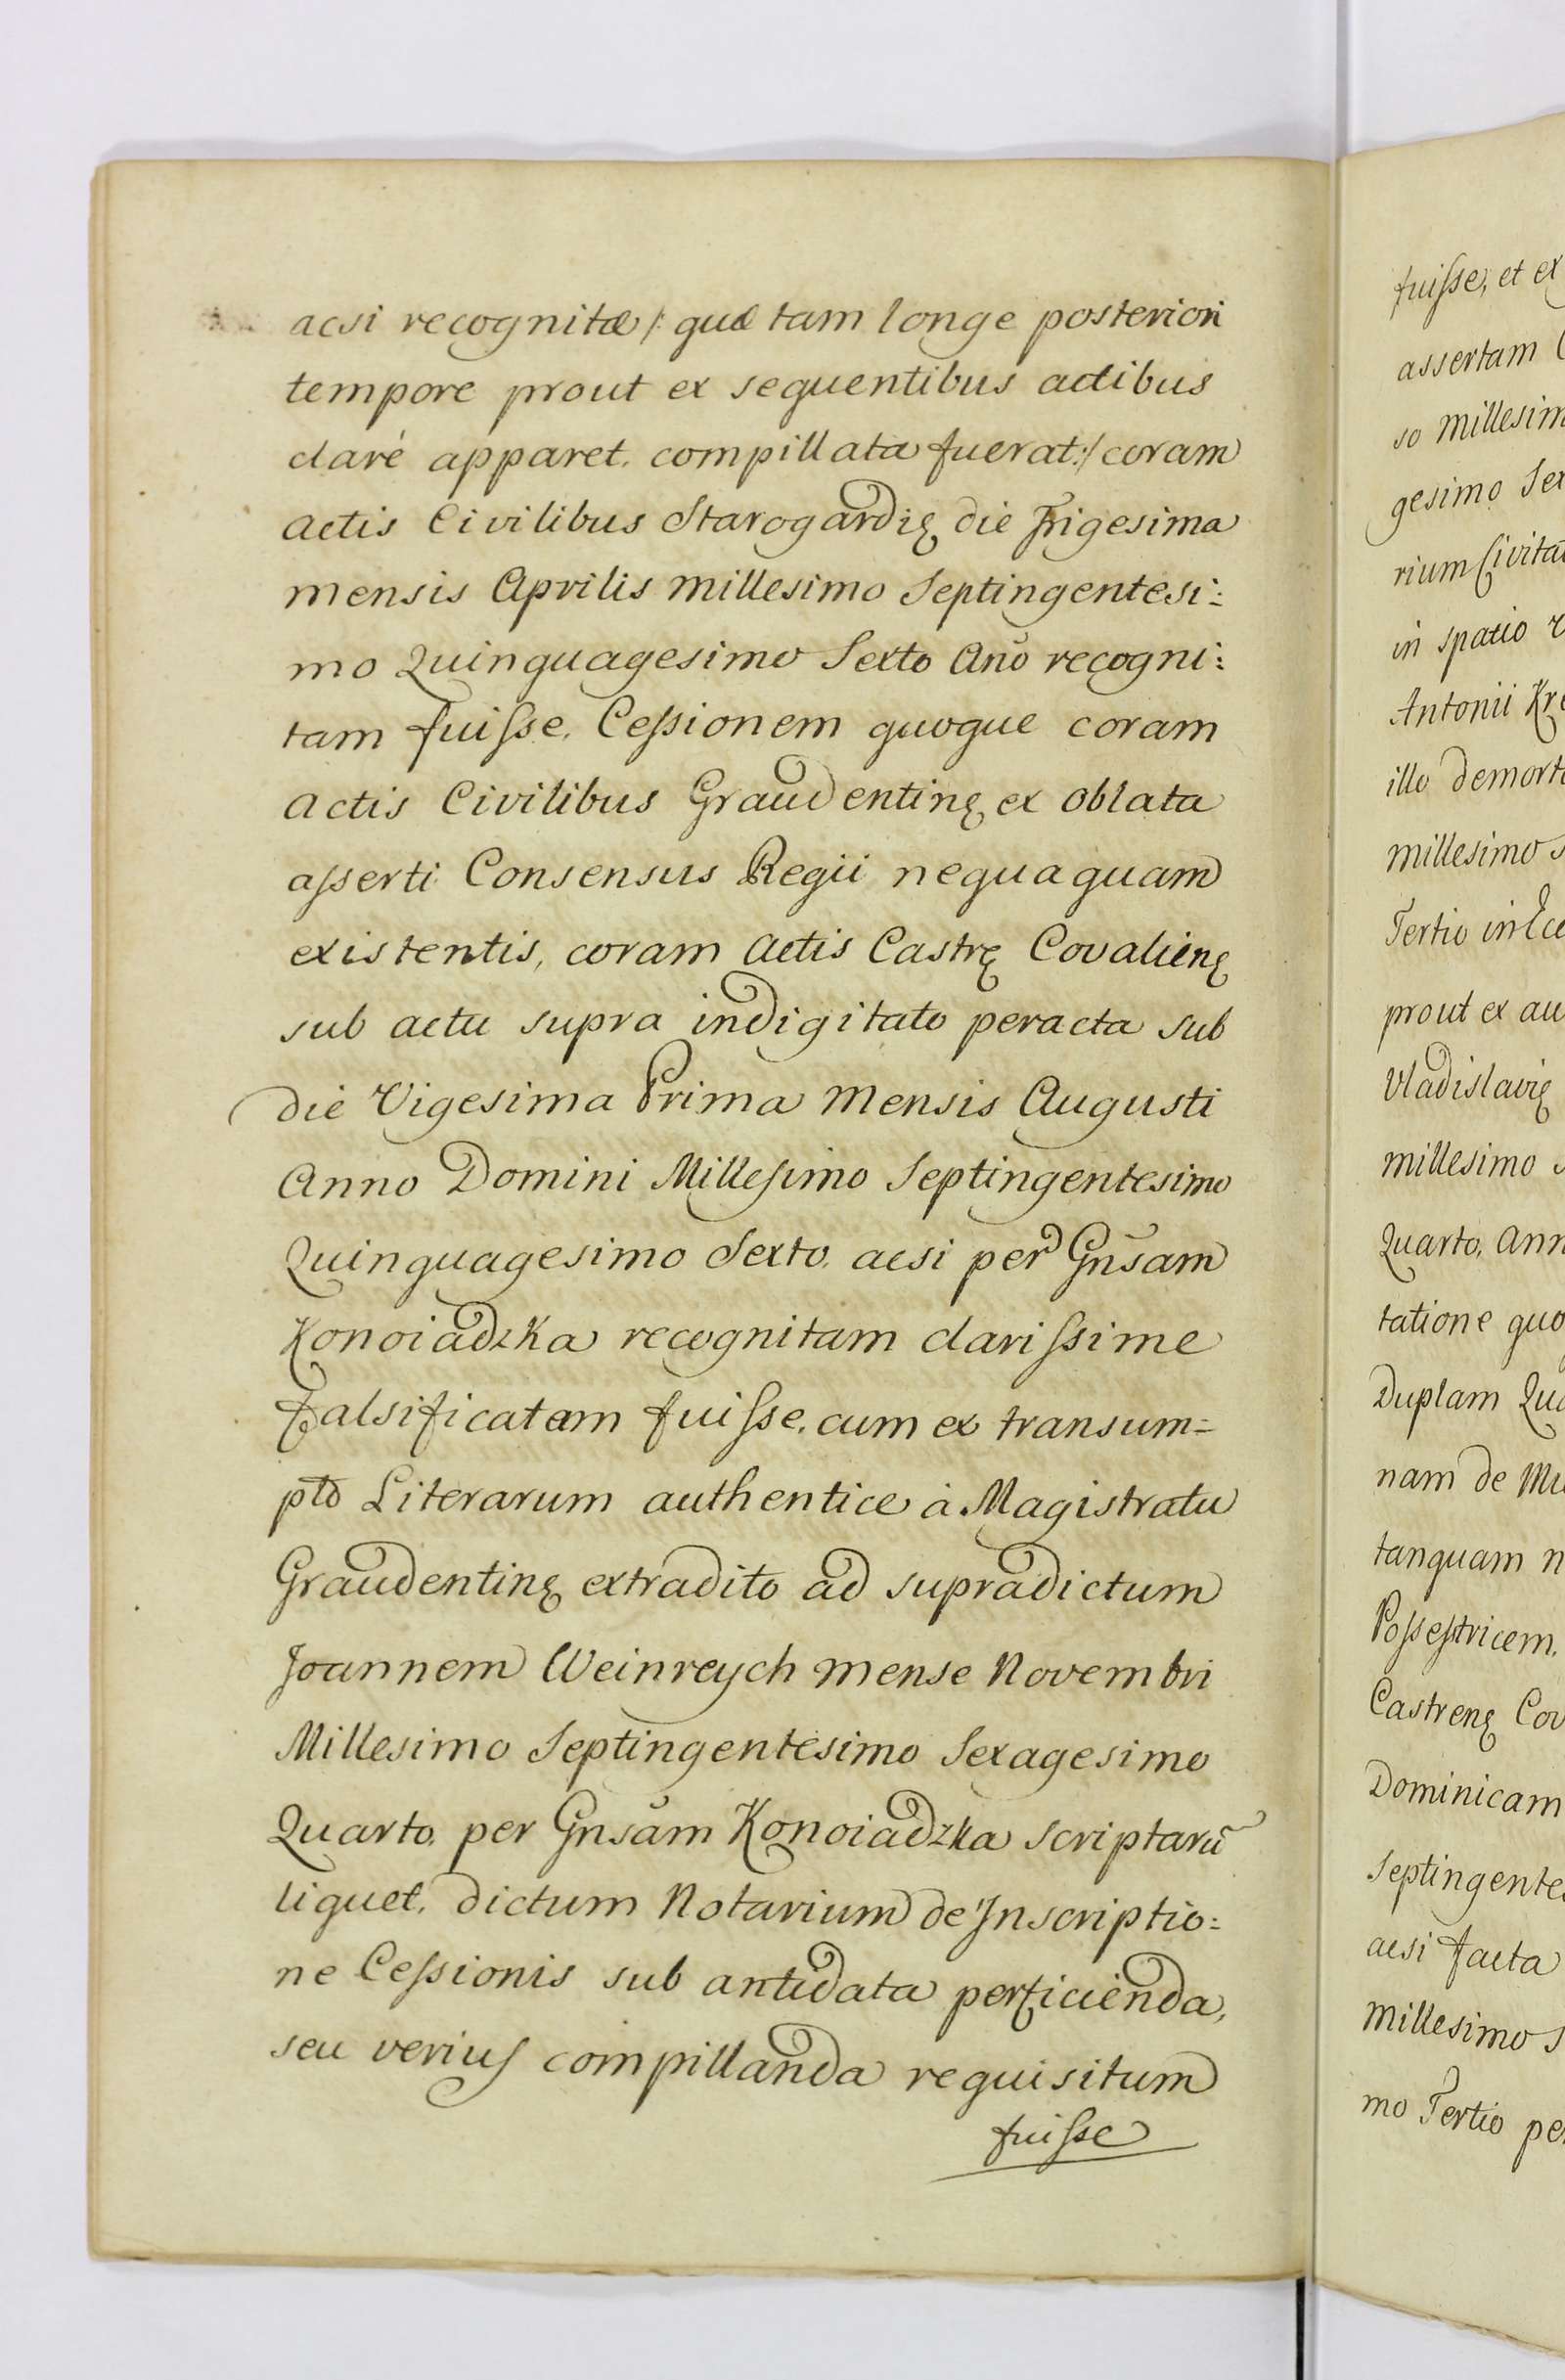 acsi recognitæ /: quæ tam longe posteriori
tempore prout ex sequentibus actibus
claré apparet. compillata fuerat :/ coram
actis Civilibus Starogardię die Trigesima
mensis Aprilis millesimo Septingentesi:
mo Quinquagesimo Sexto Año recogni:
tam fuiſse. Ceſsionem quoque coram
actis Civilibus Graudentinę ex oblata
aſserti Consensus Regii nequaquam
existentis, coram actis Castrę Covalienę
sub actu supra indigitato peracta sub
die Vigesima Prima mensis Augusti
Anno Domini Milleſimo Septingentesimo
Quinquagesimo Sexto. acsi per Gnsam
Konoiadzka recognitam clariſsime
falsificatam fuiſse. cum ex transum=
pto Literarum authentice à Magistratu
Graudentinę extradito ad supradictum
Joannem Weinreych mense Novembri
Millesimo Septingentesimo Sexagesimo
Quarto. per Gnsam Konoiadzka scriptarũ
liquet. dictum Notarium de Inscriptio:
ne Ceſsionis sub antidata perficienda,
seu veriuſ compillanda requisitum
fuiſse
fuiſse, et ex
assertam
so millesim
gesimo Sex
rium Civita
in spatio
Antonii
illo demort
millesimo
Tertio in
prout ex au
Vladislavię
millesimo
Quarto, Ann
tatione quo
Duplam
nam de
tanquam n
Poſseſtricem.
Castrenę Cov
Dominicam
Septingente
acsi facta
millesimo S
mo Tertio pe